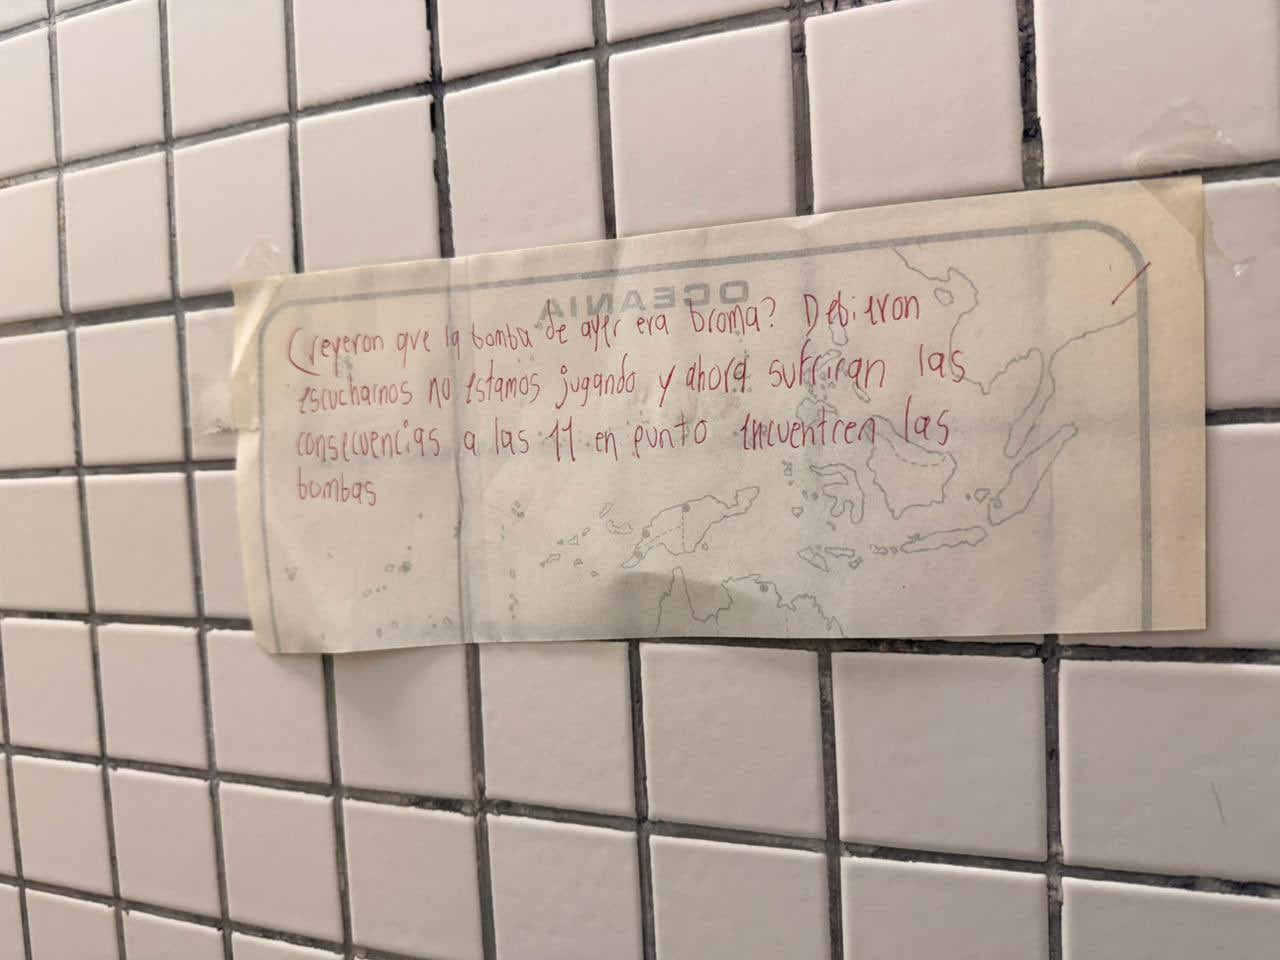 OCEANIA
Creyeron que la bomba de ayer era broma? Debieron
escucharnos no estamos jugando y ahora sufriran las
consecuencias a las 11 en punto encuentren las
bombas